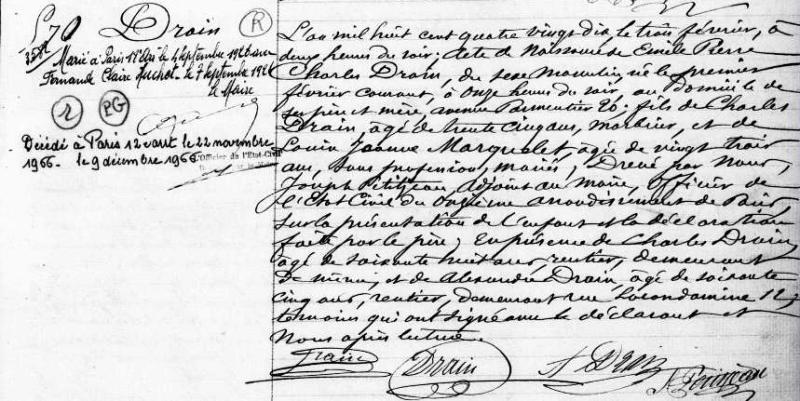 570
Drain
R
Marié à Paris 17e Arr le 4 Septembre 1926 avec
Fernande Claire Huchet. le 7 Septembre 1926
le Maire
2
PG
Décédé à Paris 12 e arrt le 22 novembre
1966. le 9 décembre 1966
L'Officier de l'État-Civil
L'an mil huit cent quatre vingt dix, le trois février, à
deux heures du soir; Acte de Naissance de Emile Pierre
Charles Drain, du sexe Masculin, né le premier
février courant, à onze heures du soir, au domicile de
ses père et mère, avenue Parmentier 26; fils de Charles
Drain, âgé de trente cinq ans, marbrier, et de
Louise Jeanne Marguelet, âgée de vingt trois
ans, sans profession, mariés; Dressé par Nous,
Joseph Petitjean, Adjoint au Maire, Officier de
l'Etat Civil du Onzième arrondissement de Paris
sur la présentation de l'enfant et la déclaration
faite par le père; En présence de Charles Drain
âgé de soixante huit ans, rentier, demeurant
de même, et de Alexandre Drain, âgé de soixante
cinq ans, rentier, demeurant rue Lacondamine 12;
témoins qui ont signé avec le déclarant et
Nous après lecture.
Drain
Drain
A Drain
J. Petitjean